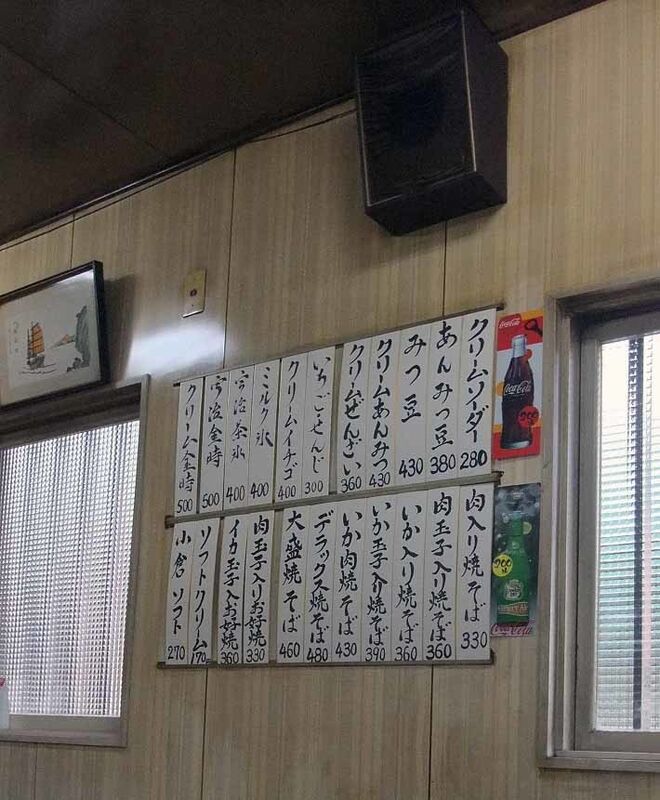 クリームソーダー 280
あんみつ豆 380
みつ豆 430
クリームあんみつ 430
クリームぜんざい 360
いちご・せんじ 300
クリームイチゴ 400
ミルク氷 400
宇治茶氷 400
宇治金時 500
クリーム金時 500
肉入り焼そば 330
肉玉子入り焼そば 360
いか入り焼そば 360
いか玉子入り焼そば 390
いか肉焼そば 430
デラックス焼そば 480
大盛焼そば 460
肉玉子入りお好焼 330
イカ玉子入お好焼 360
ソフトクリーム 170
小倉ソフト 270
Coca-Cola
Coca-Cola
200
200
Coca-Cola